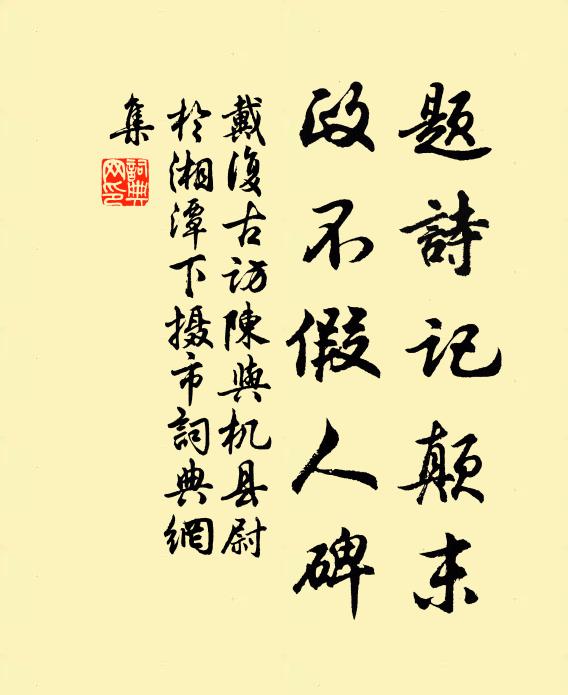 题詩记颠末
政不假人碑
戴復古訪陳與机县尉
於湘潭下摄市詞典網
集
詞典網印